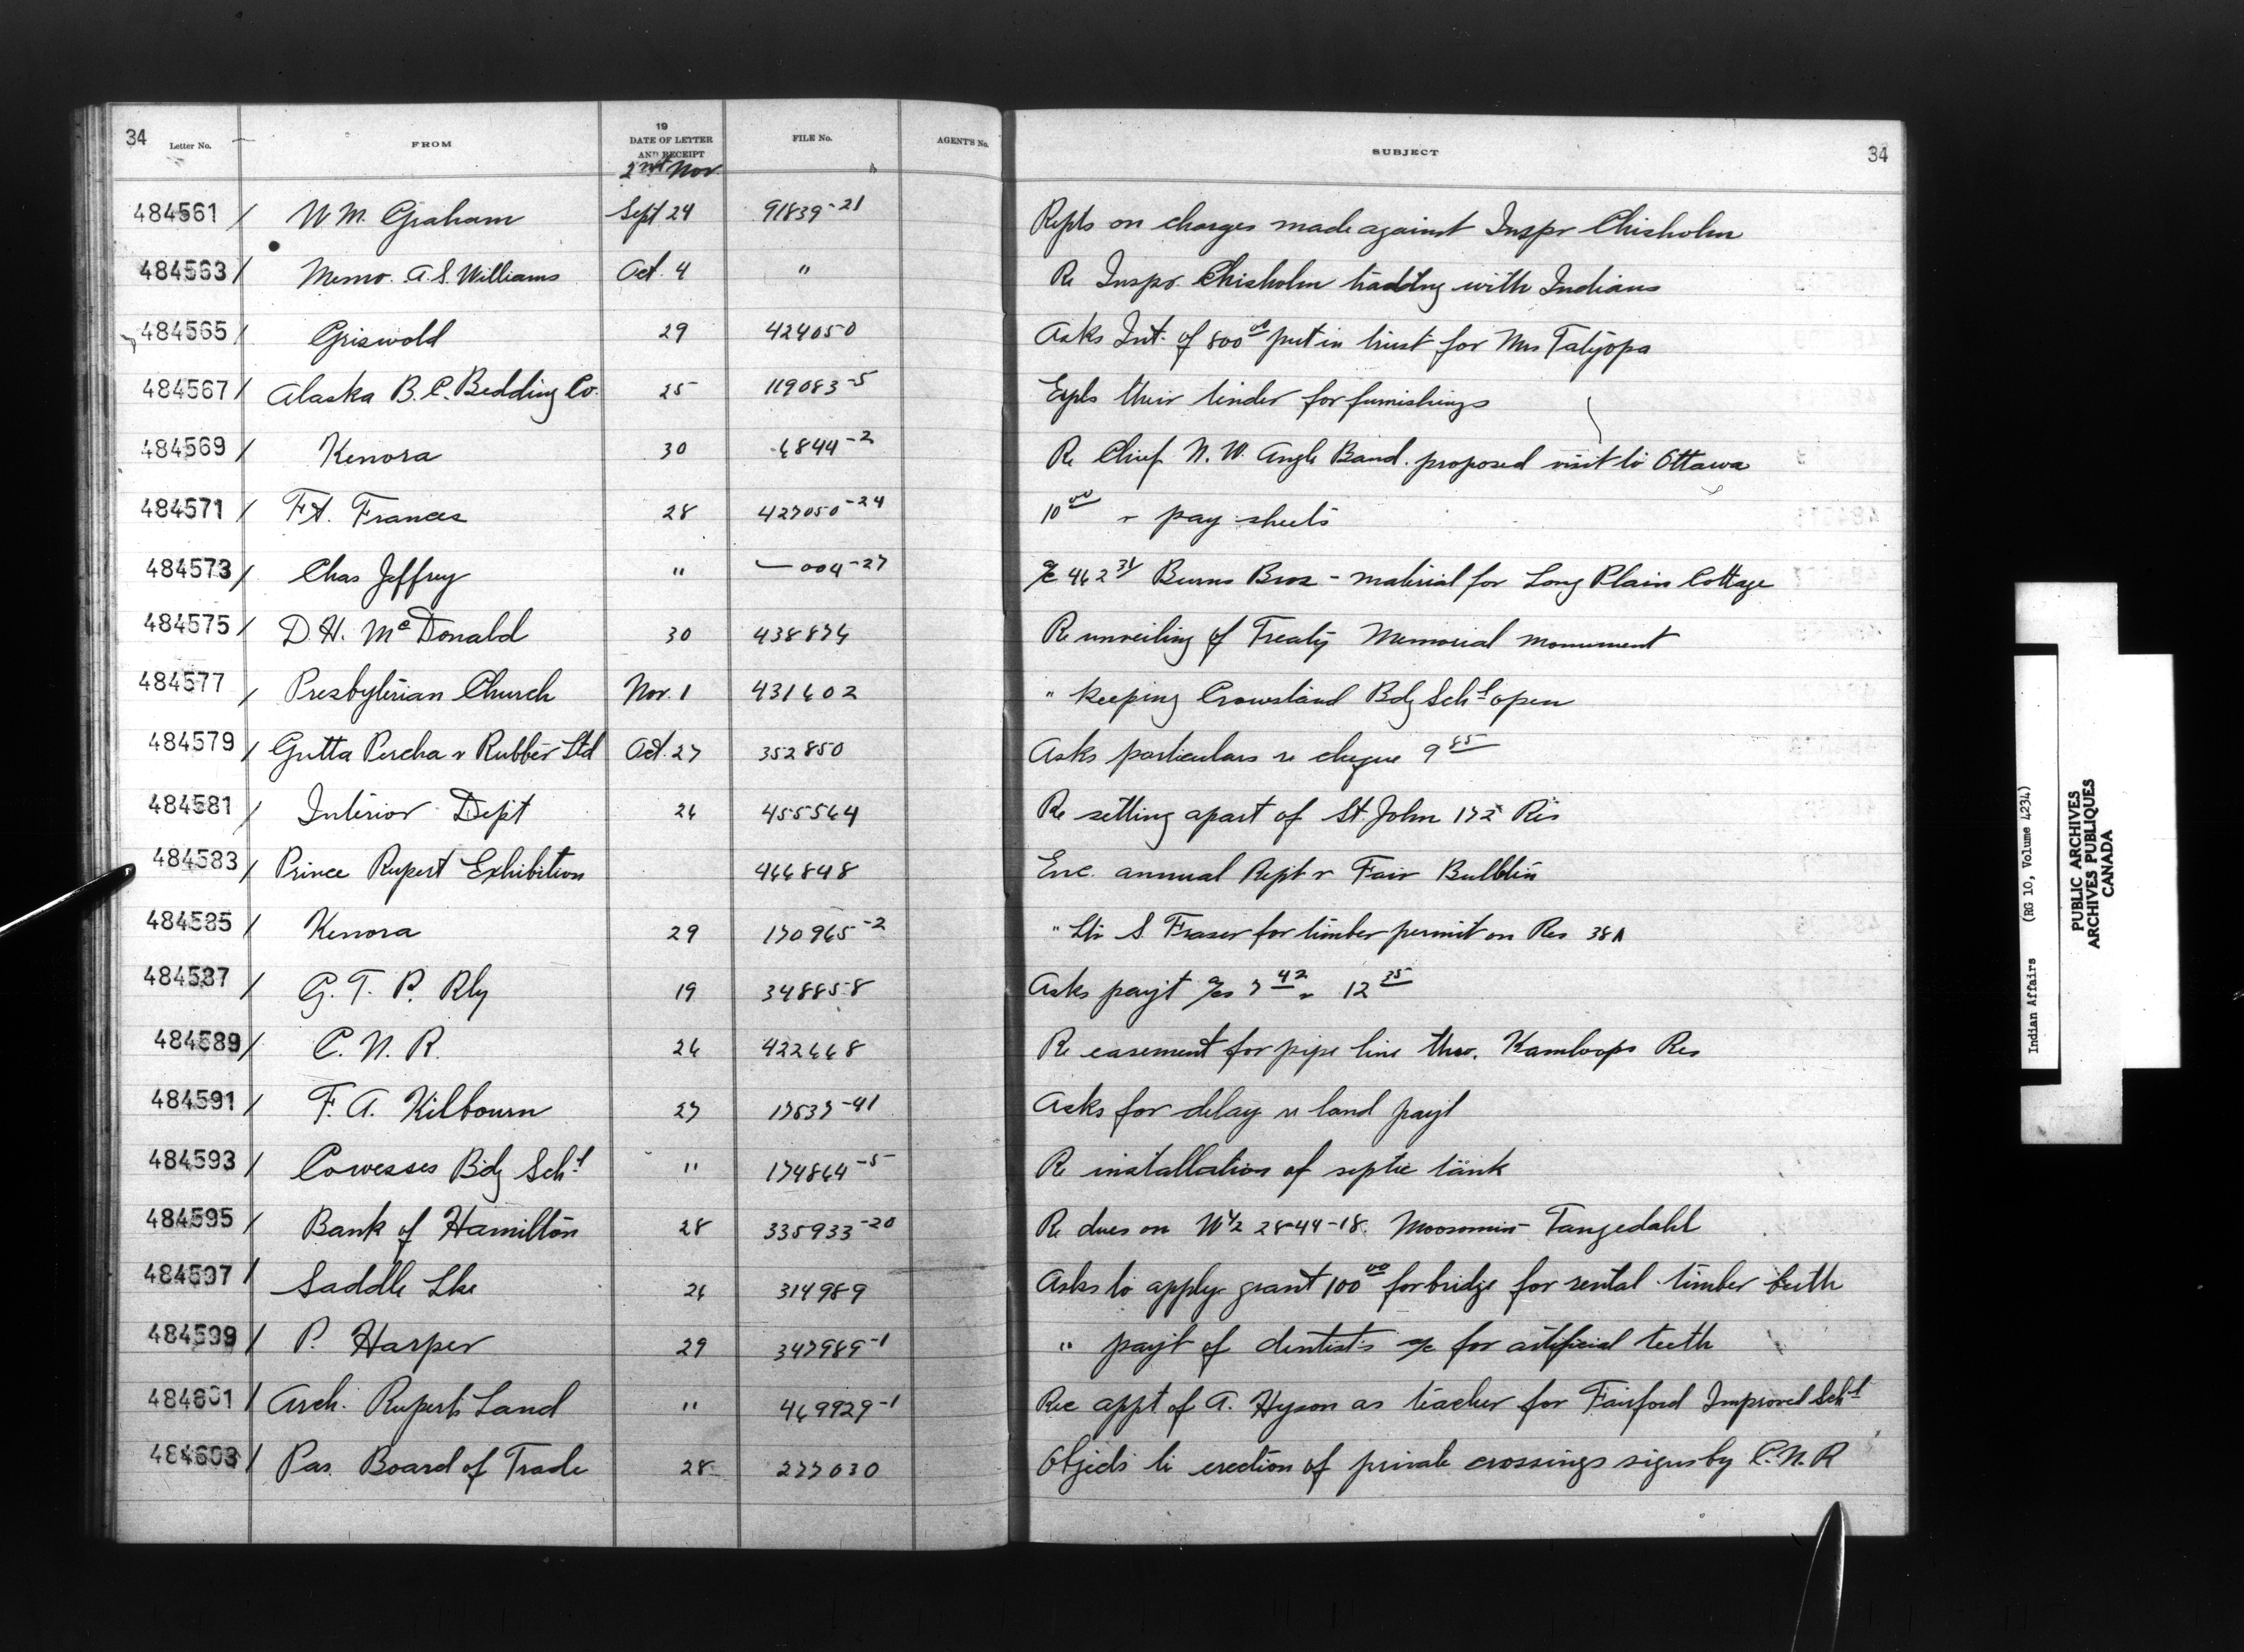 34 Letter No. FROM 19 DATE OF LETTER AND RECEIPT FILE No. AGENT'S No. SUBJECT 34
2nd Nov
484561 / W M. Graham Sept 24 91839-21 Repts on charges made against Inspr Chisholm
484563 / Memo. A. S. Williams Oct. 4 " Re Inspr. Chisholm trading with Indians
484565 / Griswold 29 424050 Asks Int. of 800 00 put in trust for Mrs Tatiyopa
484567 / Alaska B. C. Bedding Co. 25 119083-5 Expls their tender for furnishings
484569 / Kenora 30 6844-2 Re Chief N. W. Angle Band. proposed visit to Ottawa
484571 / Ft. Frances 28 427050-24 10 00 & pay sheets
484573 / Chas Jeffrey " — 004-27 a/c 462 31 Burns Bros - material for Long Plain Cottage
484575 / D. H. McDonald 30 438874 Re unveiling of Treaty Memorial Monument
484577 / Presbyterian Church Nov. 1 431602 " keeping Crowstand Bdg Schl open
484579 / Gutta Percha & Rubber Ltd Oct. 27 352850 Asks particulars re cheque 9 85
484581 / Interior Dept 26 455564 Re setting apart of St. John 172 Res
484583 / Prince Rupert Exhibition 466848 Enc. annual Rept & Fair Bulletin
484585 / Kenora 29 170965-2 " Ltr S. Fraser for timber permit on Res 38A
484587 / G. T. P. Rly 19 348858 Asks payt a/cs 7 42 & 12 35
484589 / C. N. R. 26 422668 Re easement for pipe line thro. Kamloops Res
484591 / F. A. Kilbourn 27 17537-41 Asks for delay re land payt
484593 / Cowesses Bdg Schl " 174864-5 Re installation of septic tank
484595 / Bank of Hamilton 28 335933-20 Re dues on W½ 28-44-18. Moosomin - Tangedahl
484597 / Saddle Lke 26 314989 Asks to apply grant 100 00 for bridge for rental timber berth
484599 / P. Harper 29 347989-1 " payt of dentist's a/c for artificial teeth
484601 / Arch. Ruperts Land " 469929-1 Rec appt of A. Hyson as teacher for Fairford Improved Schl
484603 / Pas Board of Trade 28 277030 Objects to erection of private crossings signs by C. N. R
Indian Affairs (RG 10, Volume 4234)
PUBLIC ARCHIVES
ARCHIVES PUBLIQUES
CANADA